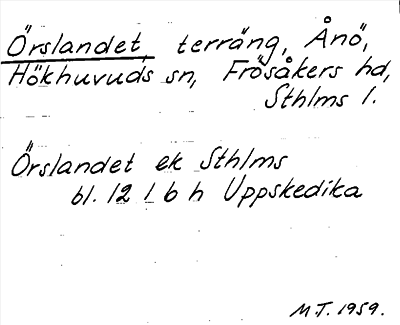 Örslandet, terräng, Ånö,
Hökhuvuds sn, Frösåkers hd,
Sthlms l.
Örslandet ek Sthlms
bl. 12 I 6 h Uppskedika
M.T. 1959.